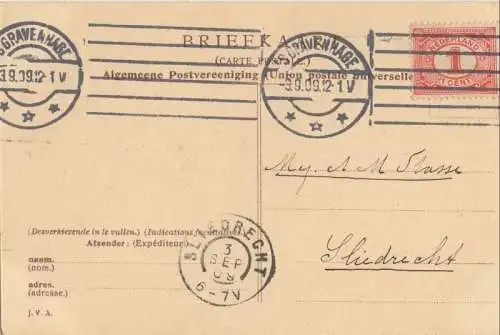 BRIEFKA
(CARTE
Algemeene Postvereeniging (Union postale universelle
'SGRAVENHAGE
3.9.09.12-1 V
'SGRAVENHAGE
-3.9.09.12-1 V
NEDERLAND
1
CENT
Mej. A M
Sliedrecht
(Desverkiezende in te vullen.) (Indications facultatives.)
Afzender: (Expéditeur)
naam.
(nom.)
adres.
(adresse.)
J. V. A.
SLIEDRECHT
3
SEP
09
6-7V